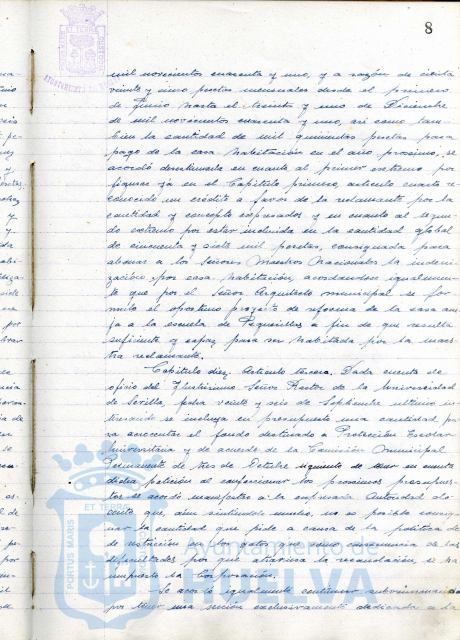 8
mil novecientos cuarenta y uno, y a razón de ciento
veinte y cinco pesetas mensuales desde el primero
de Junio hasta el treinta y uno de Diciembre
de mil novecientos cuarenta y uno, así como tam-
bien la cantidad de mil quinientas pesetas para
pago de la casa habitación en el año proximo, se
acordó desestimarla en cuanto al primer extremo por
figurar ya en el Capítulo primero, artículo cuarto re-
conocido un crédito a favor de la reclamante por la
cantidad y concepto expresados y en cuanto al segun-
do extremo por estar incluida en la cantidad global
de cincuenta y siete mil pesetas, consignada para
abonar a los Señores Maestros Nacionales la indemni-
zación por casa habitación, acordandose igualmen-
te que por el Señor Arquitecto municipal se for-
mule el oportuno proyecto de reforma de la casa ane-
ja a la escuela de a fin de que resulte
suficiente y capaz para ser habitada por la maes-
tra reclamante.
Capítulo diez. Artículo tercero. Dada cuenta de
oficio del Ilustrísimo Señor Rector de la Universidad
de Sevilla, fecha veinte y seis de Septiembre último in-
teresando se incluya en presupuesto una cantidad pa-
ra acrecentar el fondo destinado a Protección Escolar
Universitaria y de acuerdo de la Comisión Municipal
Permanente de tres de Octubre siguiente de tener en cuenta
dicha petición al confeccionar los proximos presupues-
tos se acordó manifestar a la expresada Autoridad do-
cente que, aun sintiendolo mucho, no es posible consig-
nar la cantidad que pide a causa de la política de
de restricción en los gastos que como consecuencia de las
dificultades por que atraviesa la recaudación, se ha
impuesto la Corporación.
Se acordó igualmente continuar subvencionando
por tener una sección exclusivamente dedicada a la
Ayuntamiento de
HUELVA
PORTUS MARIS
ET TERRAE